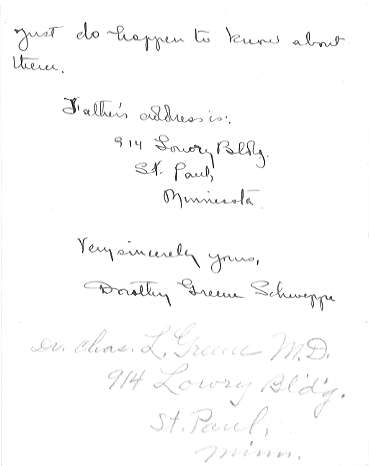 just do happen to know about
them.
Father's address is:
914 Lowry Bldg.
St. Paul,
Minnesota
Very sincerely yours,
Dorothy Greene Schweppe
Dr. Chas. L. Greene M.D.
914 Lowry Bld'g.
St. Paul,
Minn.